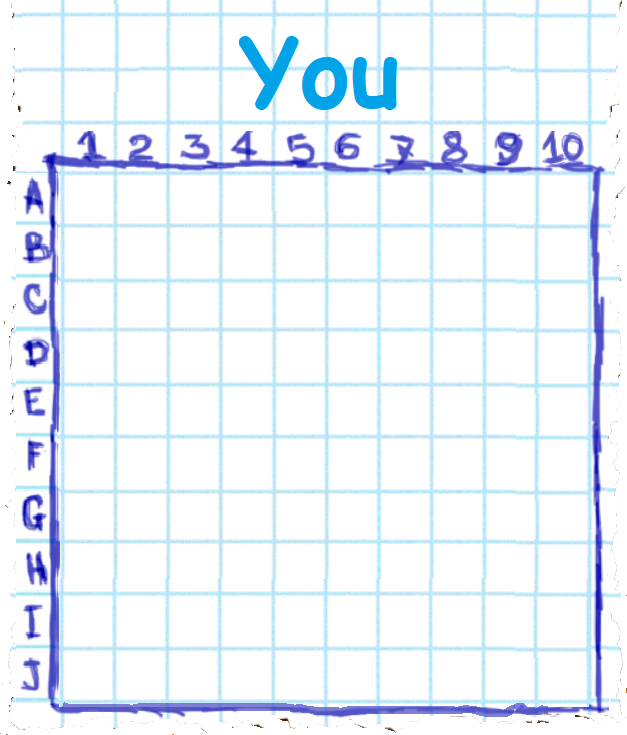 You
1 2 3 4 5 6 7 8 9 10
A
B
C
D
E
F
G
H
I
J